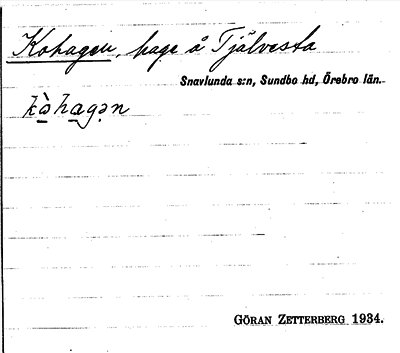 Kohagen, hage å Tjälvesta
Snavlunda s:n, Sundbo hd, Örebro län.
kə̀hagən
GÖRAN ZETTERBERG 1934.